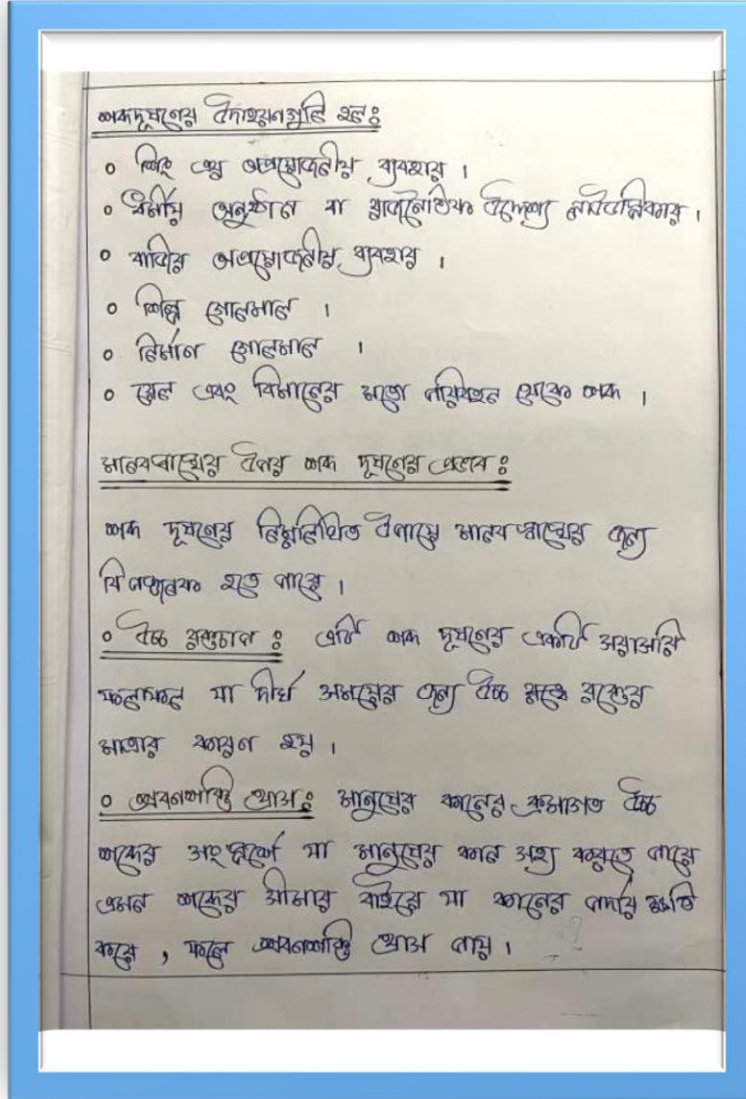 শব্দদূষণের উদাহরনগুলি হল :
০ শিং এর অপ্রয়োজনীয় ব্যবহার ।
০ ধর্মীয় অনুষ্ঠান বা রাজনৈতিক উদ্দেশ্য লাউডস্পিকার ।
০ বাজির অপ্রয়োজনীয় ব্যবহার ।
০ শিল্প গোলমাল ।
০ নির্মাণ গোলমাল ।
০ রেল এবং বিমানের মতো পরিবহন থেকে শব্দ ।
মানবস্বাস্থ্যের উপর শব্দ দূষণের প্রভাব :
শব্দ দূষণের নিম্নলিখিত উপায়ে মানব স্বাস্থ্যের জন্য
বিপজ্জনক হতে পারে ।
০ উচ্চ রক্তচাপ : এটি শব্দ দূষণের একটি সরাসরি
ফলাফল যা দীর্ঘ সময়ের জন্য উচ্চ রক্তে রক্তের
মাত্রার কারণ হয় ।
০ শ্রবনশক্তি হ্রাস : মানুষের কানের ক্রমাগত উচ্চ
শব্দের সংস্পর্শে যা মানুষের কান সহ্য করতে পারে
এমন শব্দের সীমার বাইরে যা কানের পর্দায় ক্ষতি
করে , ফলে শ্রবনশক্তি হ্রাস পায় ।